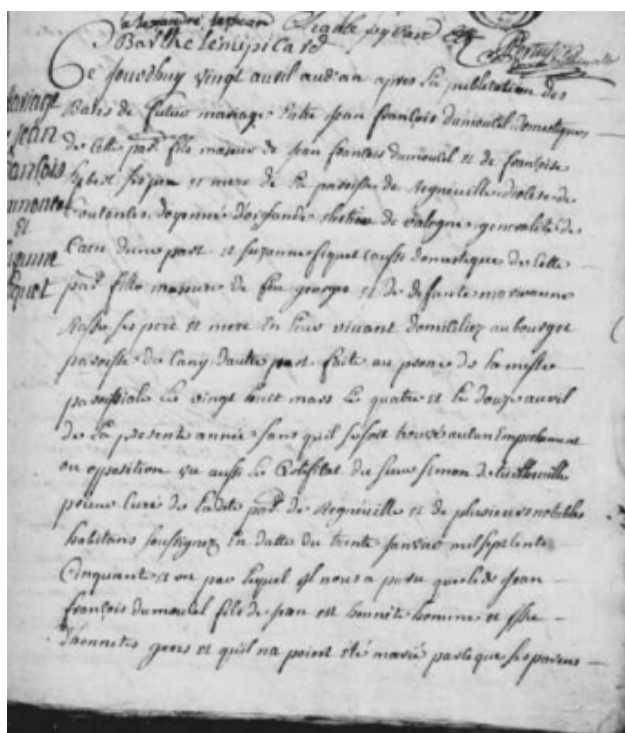 alexandre
Barthelemi picard
Ce jourdhuy vingt avril audan apres la publication des
Bans de futur mariage Entre jean françois dumoutel domestique
de Cette par. fils majeur de jean françois dumoutel et de françoise
ses pere et mere de la paroisse de Regneuille diocese de
Coutances doyenné de valogne generalité de
Caen dune part et suzanne fiquet aussi domestique de Cette
par. fille majeure de feu george et de defunte marianne
ses pere et mere En leur vivant domiciliez au bourgt
paroisse de Cany dautre part faite au prone de la messe
paroissiale Le vingt huit mars Le quatre et le douze avril
de La presente année sans quil se soit trouvé aucun Empechement
ou opposition vu aussi le Certificat du sieur simon
prieur Curé de ladite par. de Regneuille et de plusieurs notables
habitans soussignez En datte du trente janvier mil sept cents
Cinquante et un par lequel il nous a paru que ledit jean
françois dumoutel fils de jean est honnête homme et issu
d'honnetes gens et quil na point été marié parceque ses parens
mariage
jean
françois
dumoutel
Et
suzanne
fiquet